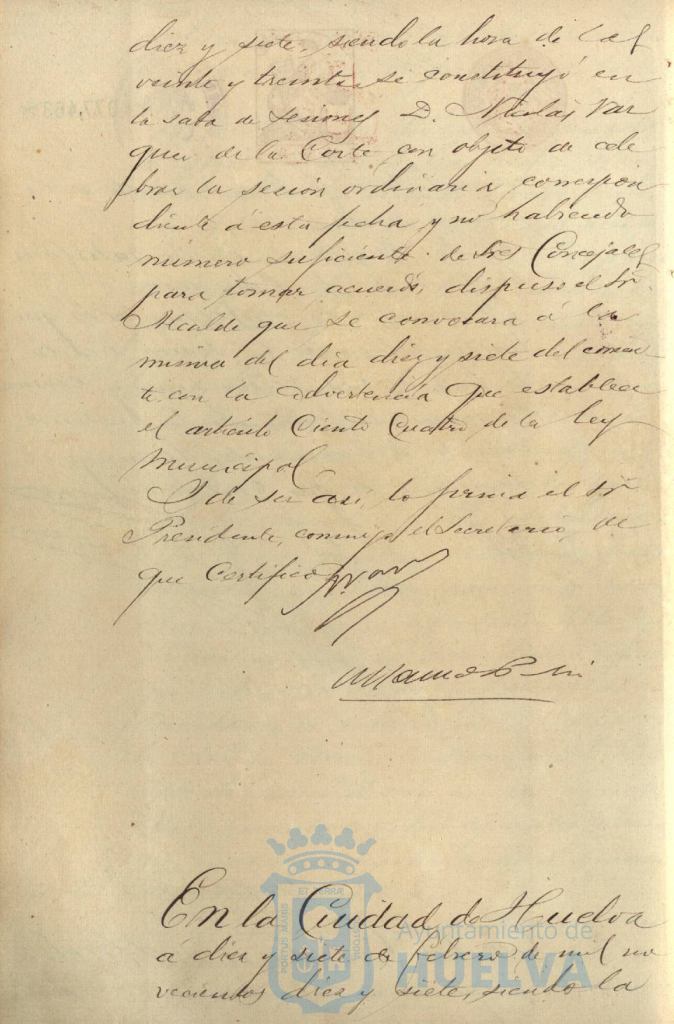 diez y siete, siendo la hora de las
veinte y treinta se constituyó en
la sala de sesiones D. Nicolas Var
quez de la Corte con objeto de cele
brar la sesión ordinaria correspon
diente á esta fecha y no habiendo
número suficiente de Sres Concejales
para tomar acuerdo, dispuso el Sr
Alcalde que se convocara á la
misma del dia diez y siete del
te con la advertencia que establece
el artículo Ciento Cuatro de la ley
Municipal
Y de ser así, lo firma el Sr
Presidente, conmigo el Secretario, de
que Certifico
En la Ciudad de Huelva
á diez y siete de febrero de mil no
vecientos diez y siete, siendo la
Ayuntamiento de
HUELVA
PORTUS MARIS
ET TERRÆ
CUSTODIA